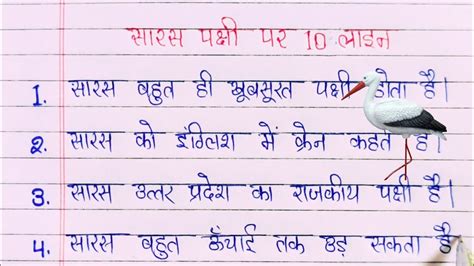 सारस पक्षी पर 10 लाइन
1. सारस बहुत ही खूबसूरत पक्षी होता है।
2. सारस को इंग्लिश में क्रेन कहते है।
3. सारस उत्तर प्रदेश का राजकीय पक्षी है।
4. सारस बहुत ऊँचाई तक उड़ सकता है